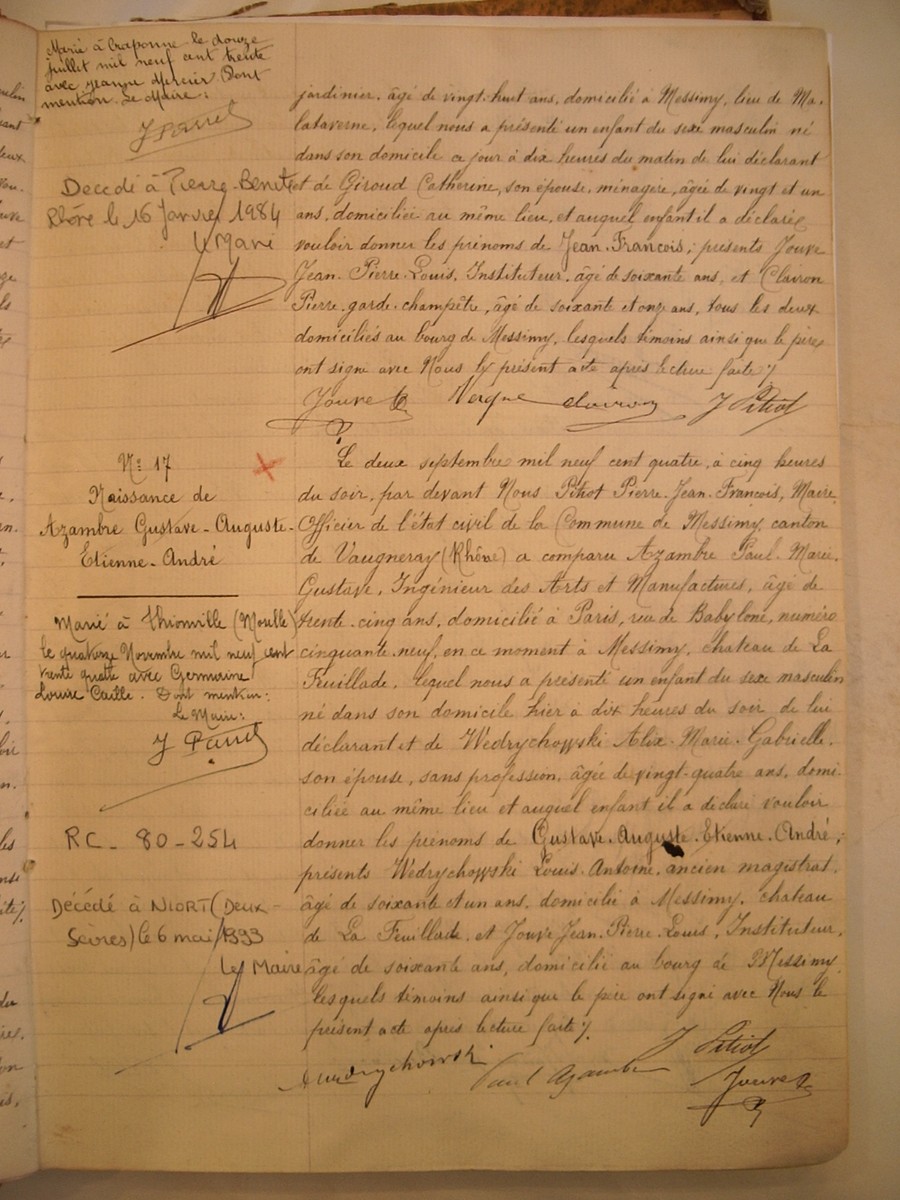 Marié à Craponne le douze
juillet mil neuf cent trente
avec Jeanne Mercier Dont
mention. Le Maire:
J Parret
Decedé à Pierre-Benite
Rhône le 16 Janvier 1984
le Maire
jardinier, âgé de vingt-huit ans, domicilié à Messimy, lieu de Ma-
lataverne, lequel nous a présenté un enfant du sexe masculin né
dans son domicile ce jour à dix heures du matin de lui déclarant
et de Giroud Catherine, son épouse, ménagère, âgée de vingt et un
ans, domiciliée au même lieu, et auquel enfant il a déclaré
vouloir donner les prénoms de Jean-François; présents Jouve
Jean-Pierre-Louis, Instituteur, âgé de soixante ans, et Clairon
Pierre, garde-champêtre, âgé de soixante et onze ans, tous les deux
domiciliés au bourg de Messimy, lesquels témoins ainsi que le père
ont signé avec Nous le présent acte après lecture faite /.
Jouve Vergne clairon J Pitiot
N° 17
Naissance de
Azambre Gustave-Auguste-
Etienne-André
Marié à Thionville (Moselle)
le quatorze Novembre mil neuf cent
trente quatre avec Germaine
Louise Caille. Dont mention:
Le Maire:
J Parret
RC - 80-254
Décédé à NIORT (Deux-
Sèvres) le 6 mai 1993
le Maire
Le deux septembre mil neuf cent quatre, à cinq heures
du soir, par devant Nous Pitiot Pierre-Jean-François, Maire
Officier de l'état civil de la Commune de Messimy, canton
de Vaugneray (Rhône) a comparu Azambre Paul-Marie-
Gustave, Ingénieur des Arts et Manufactures, âgé de
trente-cinq ans, domicilié à Paris, rue de Babylone, numéro
cinquante neuf, en ce moment à Messimy, chateau de La
Feuillade, lequel nous a présenté un enfant du sexe masculin
né dans son domicile hier à dix heures du soir de lui
déclarant et de Wedrychowski Alix-Marie-Gabrielle,
son épouse, sans profession, âgée de vingt-quatre ans, domi-
ciliée au même lieu et auquel enfant il a déclaré vouloir
donner les prénoms de Gustave-Auguste-Etienne-André;
présents Wedrychowski Louis-Antoine, ancien magistrat,
âgé de soixante et un ans, domicilié à Messimy, chateau
de La Feuillade, et Jouve Jean-Pierre-Louis, Instituteur,
âgé de soixante ans, domicilié au bourg de Messimy
lesquels témoins ainsi que le père ont signé avec Nous le
présent acte après lecture faite /.
Wedrychowski Paul Azambre J Pitiot
Jouve